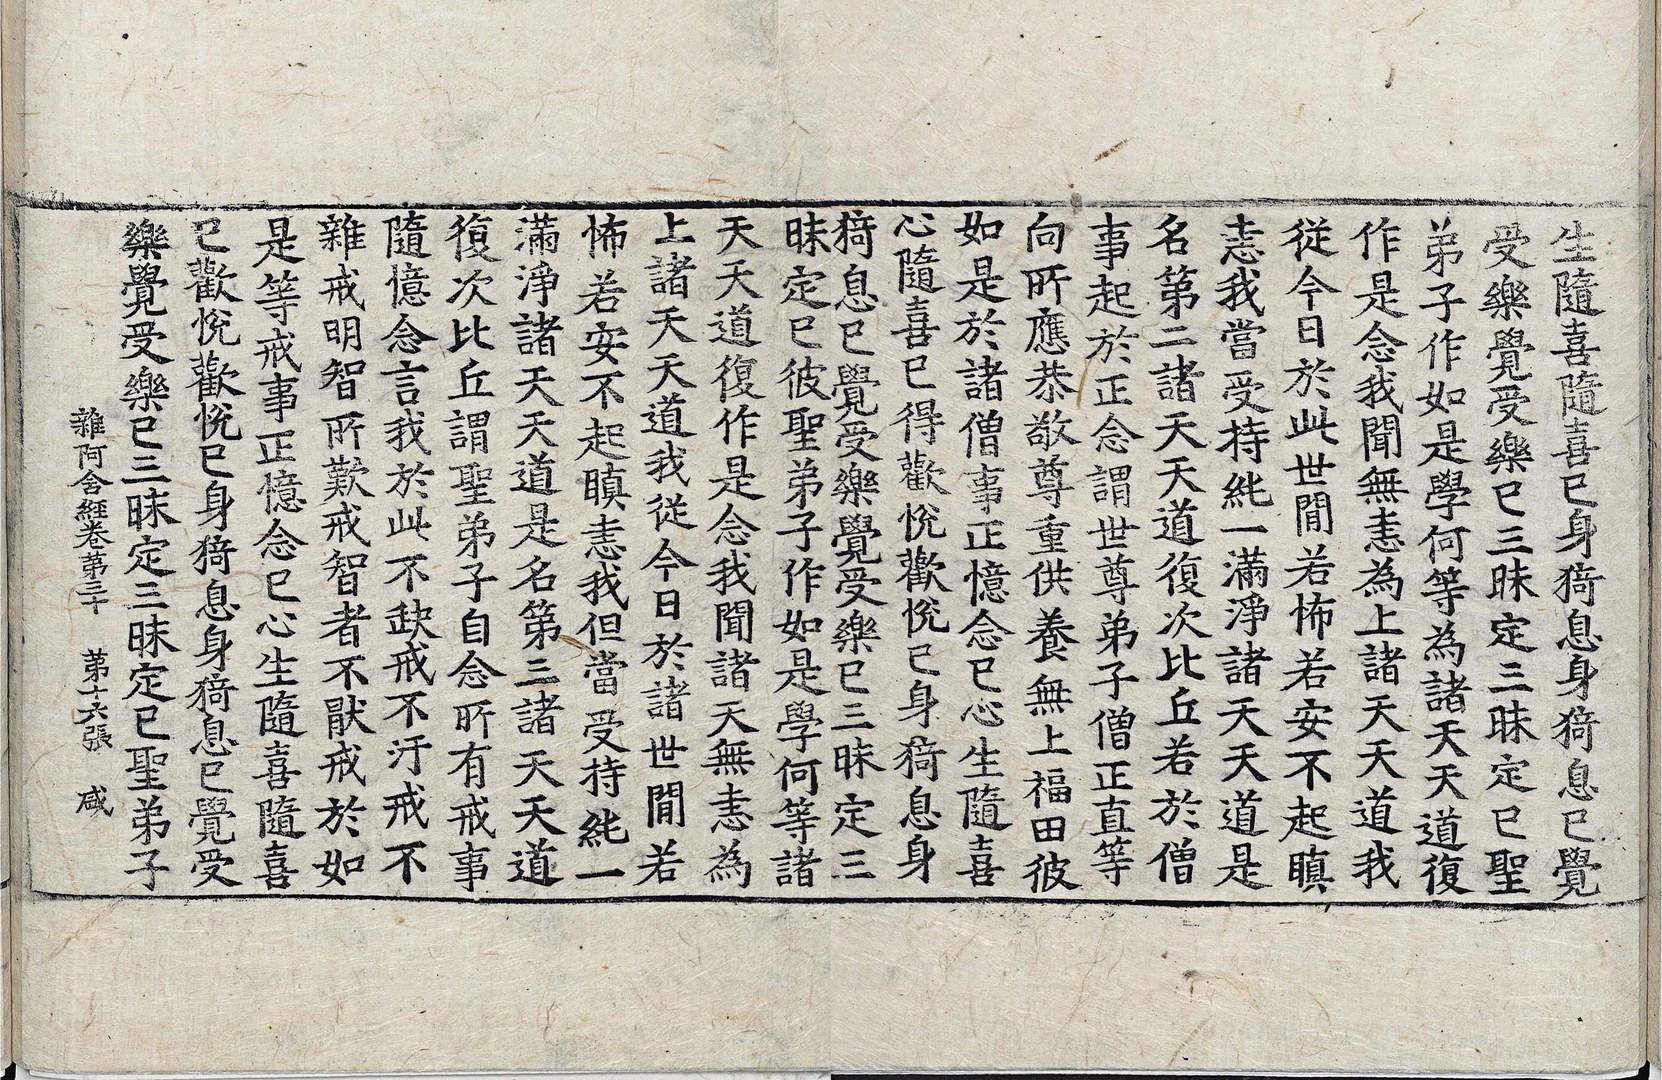 生隨喜隨喜已身猗息身猗息已覺
受樂覺受樂已三昧定三昧定已聖
弟子作如是學何等為諸天天道復
作是念我聞無恚為上諸天天道我
從今日於此世間若怖若安不起瞋
恚我當受持純一滿淨諸天天道是
名第二諸天天道復次比丘若於僧
事起於正念謂世尊弟子僧正直等
向所應恭敬尊重供養無上福田彼
如是於諸僧事正憶念已心生隨喜
心隨喜已得歡悅歡悅已身猗息身
猗息已覺受樂覺受樂已三昧定三
昧定已彼聖弟子作如是學何等諸
天天道復作是念我聞諸天無恚為
上諸天天道我從今日於諸世間若
怖若安不起瞋恚我但當受持純一
滿淨諸天天道是名第三諸天天道
復次比丘謂聖弟子自念所有戒事
隨憶念言我於此不缺戒不汙戒不
雜戒明智所歎戒智者不猒戒於如
是等戒事正憶念已心生隨喜隨喜
已歡悅歡悅已身猗息身猗息已覺受
樂覺受樂已三昧定三昧定已聖弟子
雜阿含經卷第三十 第十六張 咸